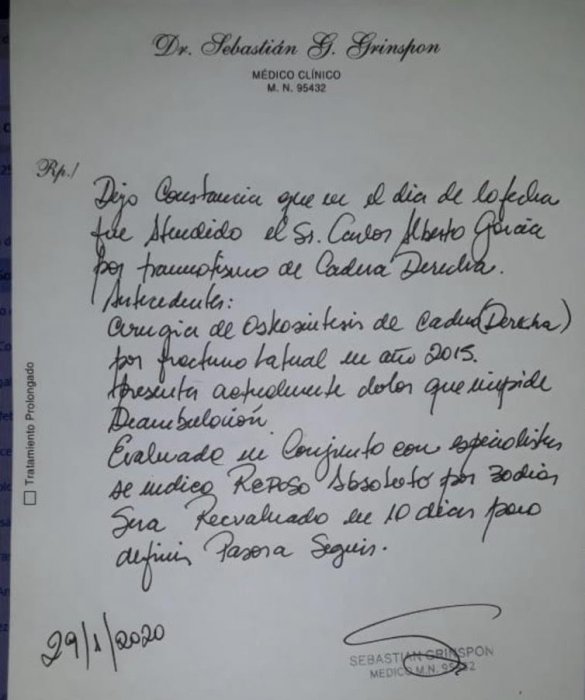 Dr. Sebastián G. Grinspon
MÉDICO CLÍNICO
M. N. 95432
Rp./
Dejo Constancia que en el dia de la fecha
fue Atendido el Sr. Carlos Alberto García
por traumatismo de Cadera Derecha.
Antecedentes:
Cirugia de Osteosintesis de Cadera (Derecha)
por fractura lateral en año 2015.
Presenta actualmente dolor que impide
Deambulación
Evaluado en Conjunto con especialistas
se indico Reposo Absoluto por 30 dias
Sera Reevaluado en 10 dias para
definir Pasos a Seguir.
Tratamiento Prolongado
29/1/2020
SEBASTIAN GRINSPON
MEDICO M.N. 95432